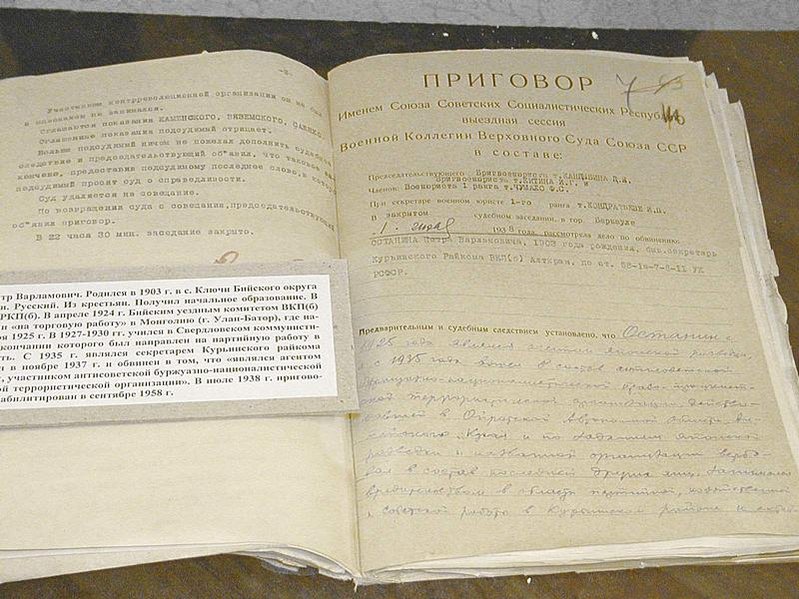 -2-
Участником контрреволюционной организации он не был
и шпионажем не занимался.
Оглашаются показания КАМЕНСКОГО, ВЯЗЕМСКОГО,
Оглашенные показания подсудимый отрицает.
Больше подсудимый ничем не пожелал дополнить судебное
следствие и председательствующий об'явил, что таковое
кончено, предоставив подсудимому последнее слово, в котором
подсудимый просит суд о справедливости.
Суд удаляется на совещание.
По возвращении суда с совещания, председательствующий
об'явил приговор.
В 22 часа 30 мин. заседание закрыто.
тр Варламович. Родился в 1903 г. в с. Ключи Бийского округа
н. Русский. Из крестьян. Получил начальное образование. В
РКП(б). В апреле 1924 г. Бийским уездным комитетом ВКП(б)
н «на торговую работу» в Монголию (г. Улан-Батор), где на-
я 1925 г. В 1927-1930 гг. учился в Свердловском коммунисти-
кончания которого был направлен на партийную работу в
ть. С 1935 г. являлся секретарем Курьинского райкома
н в ноябре 1937 г. и обвинен в том, что «являлся агентом
, участником антисоветской буржуазно-националистической
й террористической организации». В июле 1938 г. пригово-
абилитирован в сентябре 1958 г.
ПРИГОВОР
Именем Союза Советских Социалистических Республик
выездная сессия
Военной Коллегии Верховного Суда Союза ССР
в составе:
Председательствующего Бригвоенюриста т.КАНДЫБИНА Д.Я.
Бригвоенюриста т.КИТИНА И.Г. и
Членов: Военюриста 1 ранга т.ЧУМАКО Ф.С.
При секретаре военном юристе 1-го ранга т.КОНДРАТЬЕВЕ И.В.
В закрытом судебном заседании, в гор. Барнауле
1. июля 1938 года, рассмотрела дело по обвинению:
ОСТАНИНА Петра Варламовича, 1903 года рождения, быв.секретарь
Курьинского Райкома ВКП(б) Алткрая, по ст. 58-1а-7-8-11 УК
РСФСР.
Предварительным и судебным следствием установлено, что Останин с
1925 года являлся агентом японской разведки,
а с 1935 года вошел в состав антисоветской
буржуазно-националистической
террористической организации
в Ойротской Автономной области
Края и по заданиям японской
разведки и названной организации вербо-
вал в состав последней других лиц, занимался
вредительством в области партийной, хозяйственной
и советской работы в Курьинском районе и